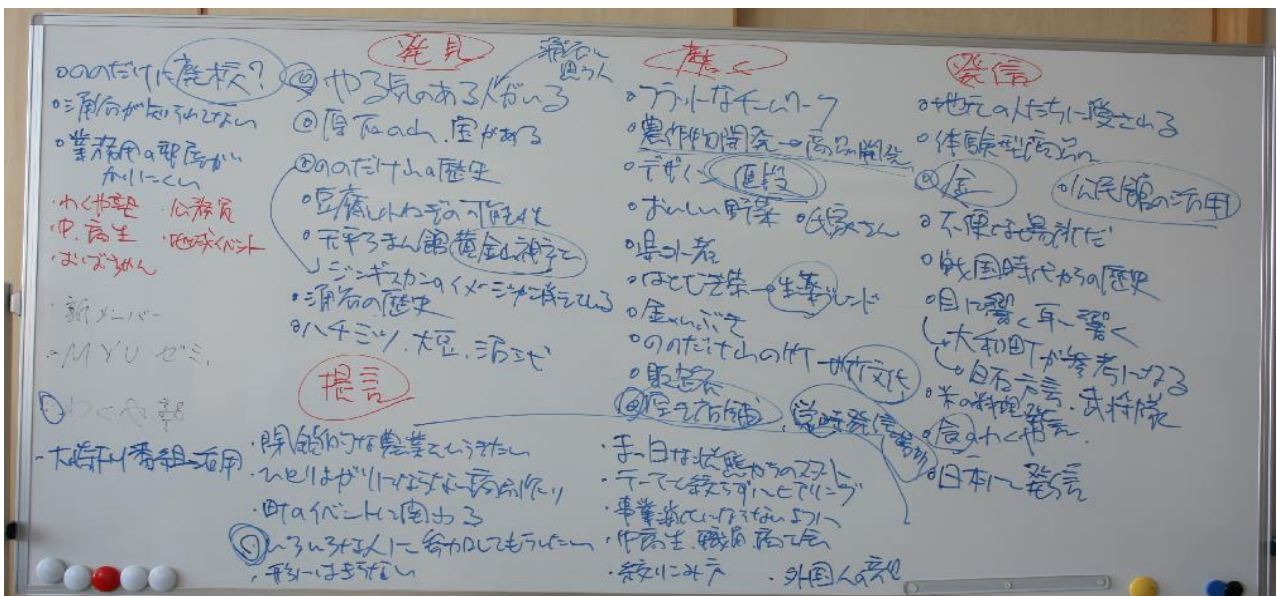 ののだけに廃校?
涌谷が知られてない
業務用の部屋が
かりにくい
・わくや塾 ・公務員
・中、高生 ・地域イベント
・おばちゃん
・新メンバー
・MYU ゼミ
わくや塾
・大崎 番組 活用
発見
涌谷を
思う人
やる気のある人がいる
ののだけ山の歴史
・天平ろまん館 黄金山神社
ジンギスカンのイメージが消えている
・涌谷の歴史
ハチミツ、大豆
提言
・閉鎖的な農業
・ひとりよがりにならない商品作り
・町のイベントに関わる
いろいろな人に参加してもらいたい
磨く
フラットなチームワーク
農作物開発→商品開発
デザイン 値段
おいしい野菜 氏家さん
県外者
はとむぎ茶→生薬ブレンド
ののだけ山の竹→竹文化
空き店舗
常時発信場所
まっ白な状態からのスタート
テーマを絞らずにヒアリング
・事業消化にならないように
・中高生、職員、商工会
・絞りこみ方 ・外国人の
発信
地元の人たちに愛される
体験型商品
金 公民館の活用
不便でも場所だ
戦国時代からの歴史
目に響く耳に響く
大和町が参考になる
白石
武将隊
米の料理
わくや
日本に発信